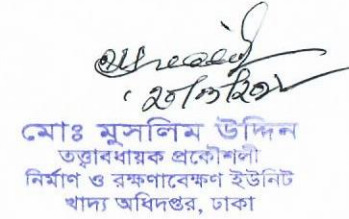 মোঃ মুসলিম উদ্দিন
তত্ত্বাবধায়ক প্রকৌশলী
নির্মাণ ও রক্ষণাবেক্ষণ ইউনিট
খাদ্য অধিদপ্তর, ঢাকা